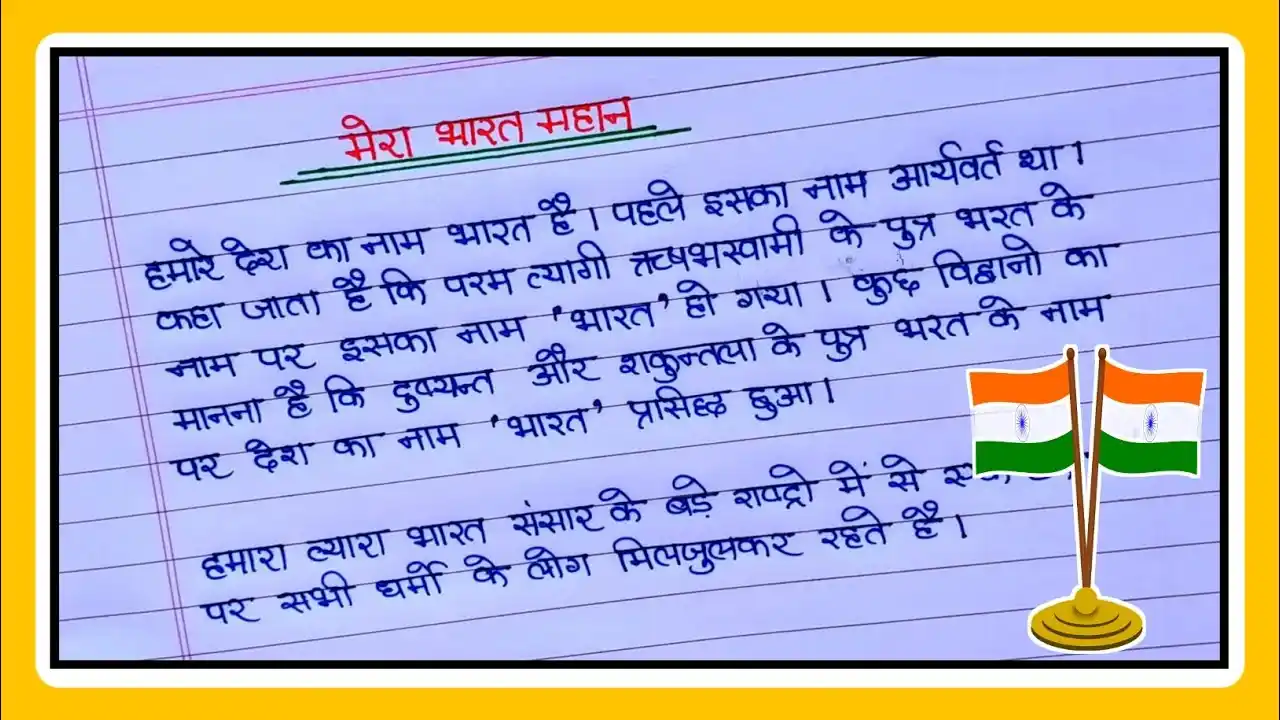 मेरा भारत महान
हमारे देश का नाम भारत है। पहले इसका नाम आर्यवर्त था।
कहा जाता है कि परम त्यागी ऋषभस्वामी के पुत्र भरत के
नाम पर इसका नाम 'भारत' हो गया। कुछ विद्वानो का
मानना है कि दुष्यन्त और शकुन्तला के पुत्र भरत के नाम
पर देश का नाम 'भारत' प्रसिद्ध हुआ।
हमारा प्यारा भारत संसार के बड़े राष्ट्रो में से
पर सभी धर्मो के लोग मिलजुलकर रहते है।